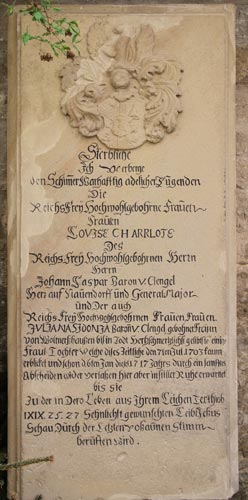 Sterbliche
Ich Verberge
den Schimer Warhafftig adelicher Tugenden
Die
Reichs Frey Hochwohlgebohrne Frauen
Frauen
LOVYSE CHARRLOTE
Des
Reichs Freÿ Hochwohlgebohrnen Herrn
Herrn
Johann Caspar Baron v. Clengel
Herr auf Naundorff und General Major
und Der auch
Reichs Freÿ Hochwohlgebohrnen Frauen Frauen
IVLIANA SIDONIA Baron v. Clengel gebohrner Freyin
von
Tochter Welche dises Zeitliche den 7 Jul 1703
erblicket und schon d 6 Jan dieses 1717 Jahrs durch ein sanfftes
Abscheiden wider verlassen hier aber in stiller Ruhe erwartet
bis sie
Zu der in Dero Leben aus Ihrem Leichen Text Hiob
IXIX. 25. 27. Sehnlichst gewünschten Leib Jesus
Schau Durch der Letzten Posaunen Stimm
beruffen wird.